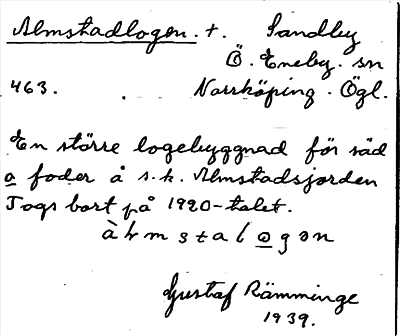 Almstadlogen. +. Sandby
Ö. Eneby. sn
463. Norrköping. Ögl.
En större logebyggnad för säd
o foder å s.k. Almstadsjorden
Togs bort på 1920-talet.
Gustaf Rämminge
1939.